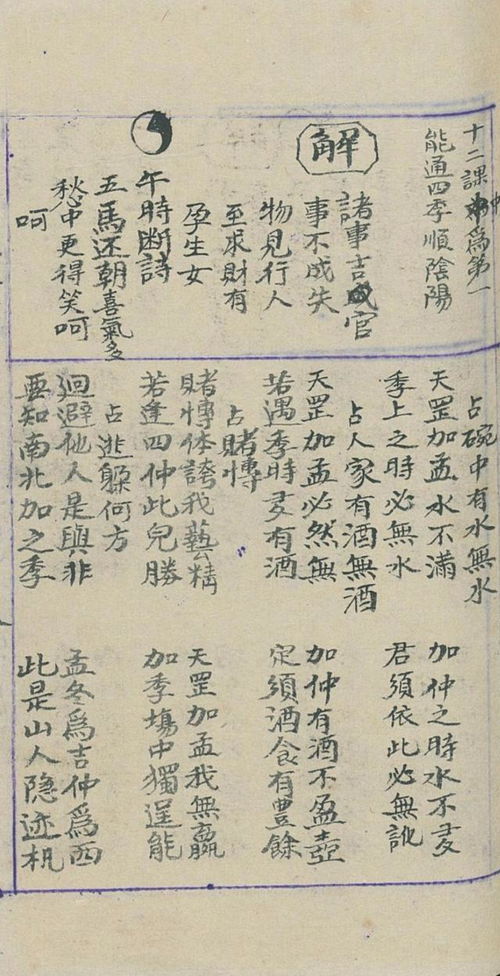 十二課中為第一
能通四季順陰陽
解
諸事吉官
事不成失
物見行人
至求財有
孕生女
午時断詩
五馬还朝喜氣多
愁中更得笑呵
呵
占碗中有水無水
天罡加孟水不滿　加仲之時水不多
季上之時必無水　君須依此必無訛
占人家有酒無酒
天罡加孟必然無　加仲有酒不盈壺
若遇季時多有酒　定須酒食有豊餘
占賭慱
賭慱体誇我藝精　天罡加孟我無贏
若逢四仲此兒勝　加季塲中獨逞能
占逃躲何方
廻避他人是與非　孟冬爲吉仲爲西
要知南北加之季　此是山人隐迹机